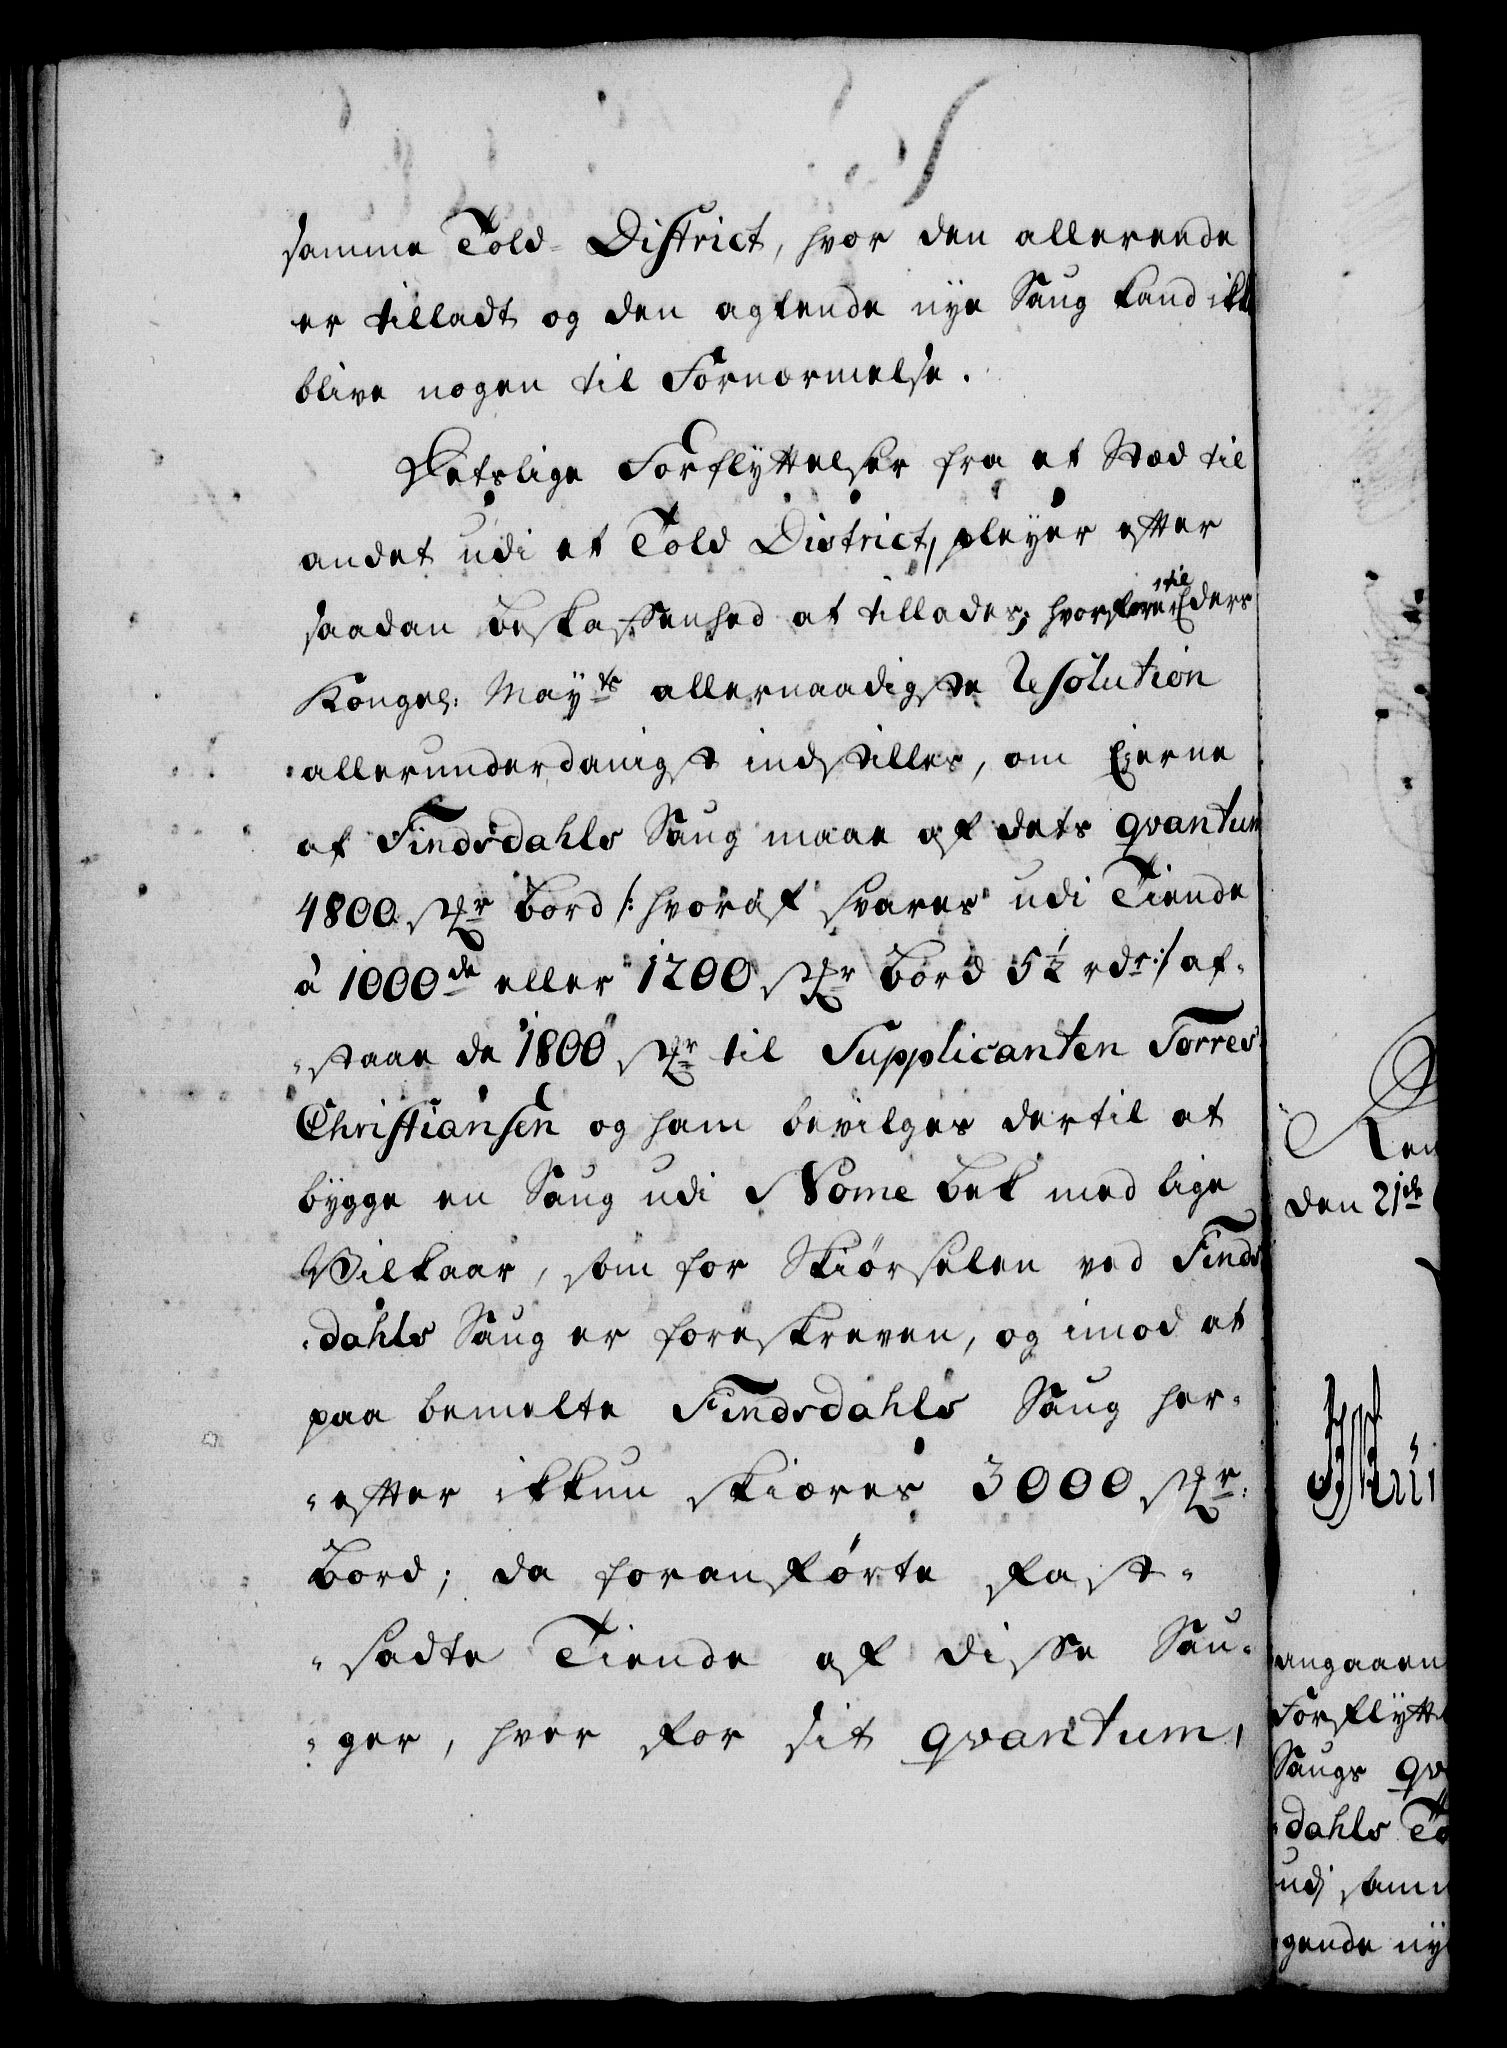 samme Told-District, hvor den allerende
er tilladt og den agtende nye Saug kand ikke
blive nogen til Fornærmelse.
Detslige Forflyttelser fra et Stæd til
andet udi et Told District, pleyer efter
saadan beskaffenhed at tillades; hvorfore til Eders
Kongel: May.ts allernaadigste Resolution
allerunderdanigst indstilles, om Eierne
af Findsdahls Saug maae af dets qvantum
4800 st\u00fckr bord /: hvoraf svares udi Tiende
à 1000de eller 1200 st\u00fckr bord 5½ rdr :/ af-
staae de 1800 st\u00fckr til Supplicanten Torres
Christiansen og ham bevilges dertil at
bygge en Saug udi Nome bek med lige
Vilkaar, som for Skiørselen ved Finds-
dahls Saug er foreskreven, og imod at
paa bemelte Findsdahls Saug her-
efter ikkun skiæres 3000 st\u00fckr:
bord; da foranførte fast-
sadte Tiende af disse Sau-
ger, hver for sit qvantum,
den 21de
angaaen
Forflytte
Saugs qv
dahls To
udi samm
gende ny